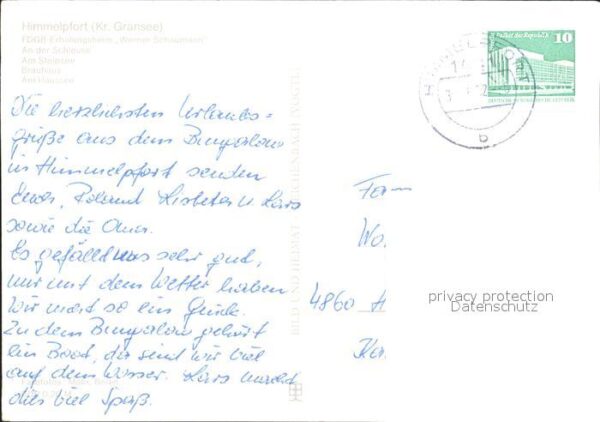 Himmelpfort (Kr. Gransee)
FDGB-Erholungsheim „Werner Schaumann"
An der Schleuse
Am Stolpsee
Brauhaus
Am Haussee
Die herzlichsten Urlaubs=
grüße aus dem Bungalow
in Himmelpfort senden
Euch, Roland Lisbeth u. Lars
sowie die Oma.
Es gefällt uns sehr gut,
nur mit dem Wetter haben
wir nicht so ein Glück.
Zu dem Bungalow gehört
ein Boot, da sind wir viel
auf dem Wasser. Lars macht
dies viel Spaß.
BILD UND HEIMAT REICHENBACH
Palast der Republik 10
HIMMELPFORT
b
Fam
Wo
4860 H
privacy protection
Datenschutz